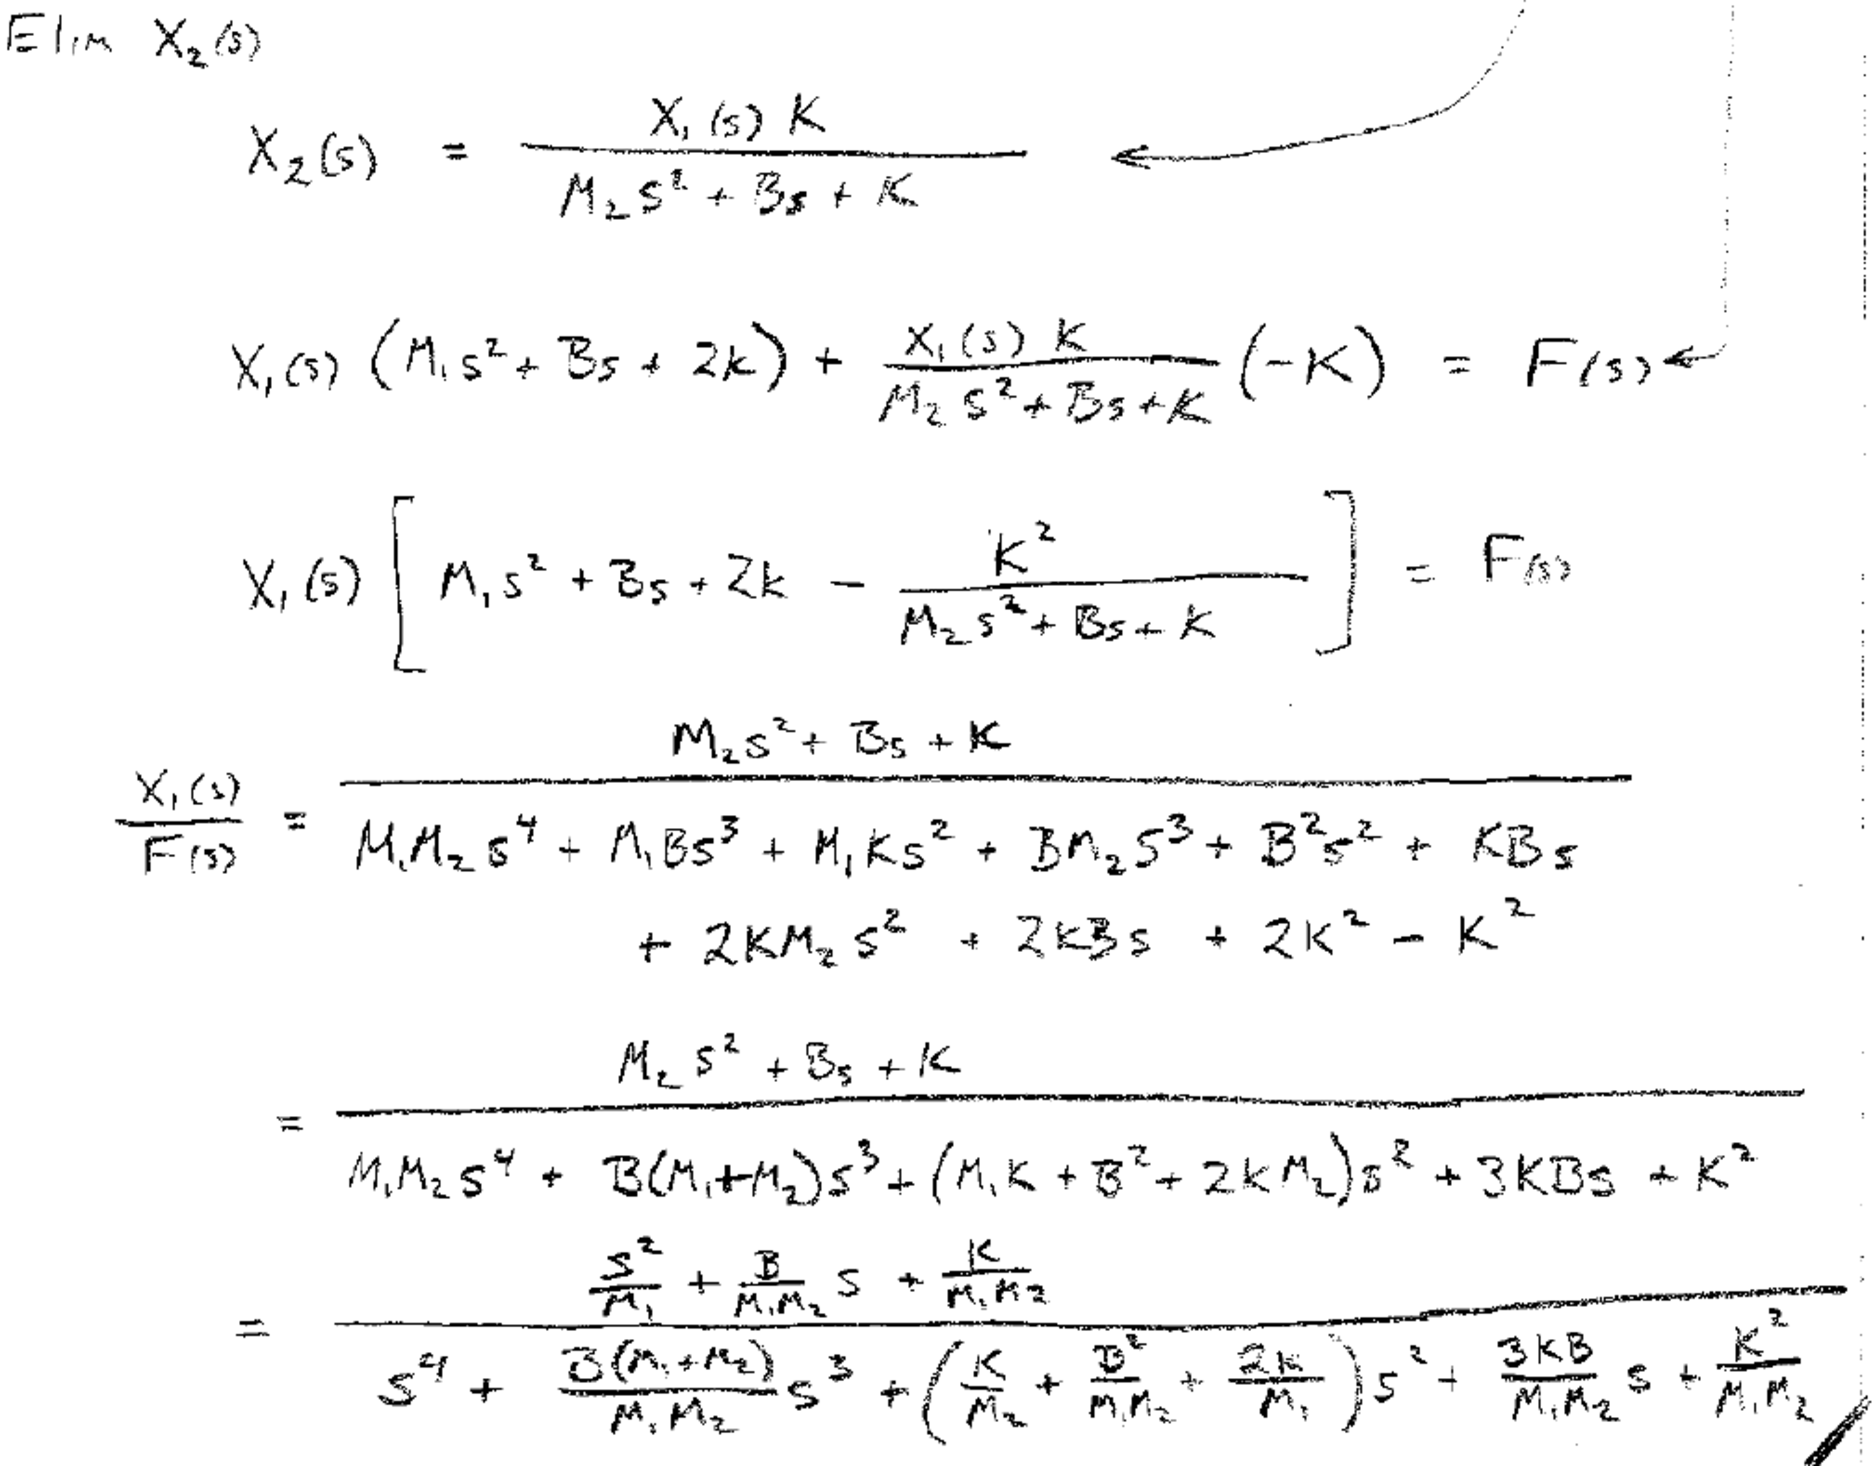 Elim X₂(s)
X₂(s) = X₁(s) K / (M₂s² + Bs + K)
X₁(s) (M₁s² + Bs + 2k) + X₁(s) K / (M₂s² + Bs + K) (-K) = F(s)
X₁(s) [ M₁s² + Bs + 2k - K² / (M₂s² + Bs + K) ] = F(s)
X₁(s) / F(s) = (M₂s² + Bs + K) / (M₁M₂s⁴ + M₁Bs³ + M₁Ks² + BM₂s³ + B²s² + KBs
+ 2KM₂s² + 2kBs + 2K² - K²)
= (M₂s² + Bs + K) / (M₁M₂s⁴ + B(M₁+M₂)s³ + (M₁K + B² + 2kM₂)s² + 3KBs + K²)
= (s²/M₁ + B/(M₁M₂) s + K/(M₁M₂)) / (s⁴ + B(M₁+M₂)/(M₁M₂) s³ + (K/M₂ + B²/(M₁M₂) + 2k/M₁) s² + 3KB/(M₁M₂) s + K²/(M₁M₂))